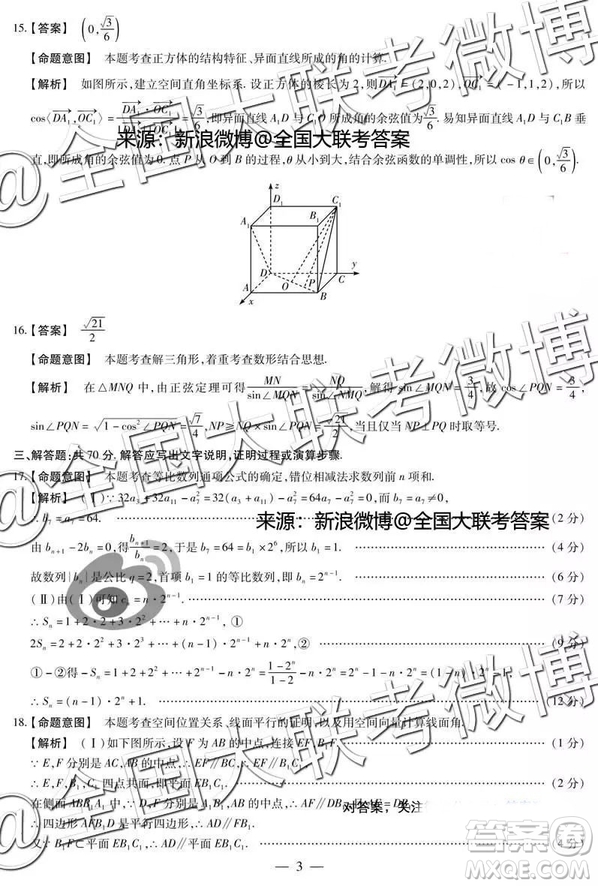 15.【答案】 (0, √3/6)
【命题意图】 本题考查正方体的结构特征、异面直线所成的角的计算.
【解析】 如图所示,建立空间直角坐标系. 设正方体的棱长为 2,则 DA₁ = (2,0,2), OC₁ = (-1,1,2),所以
cos⟨DA₁,OC₁⟩ = DA₁·OC₁/|DA₁||OC₁| = √3/6,即异面直线 A₁D 与 OC₁ 所成角的余弦值为 √3/6. 易知异面直线 A₁D 与 C₁B 垂
来源:新浪微博@全国大联考答案
直,即所成角的余弦值为 0. 点 P 从 O 到 B 的过程,θ 从小到大,结合余弦函数的单调性,所以 cos θ∈(0, √3/6).
z
D₁ C₁
A₁ B₁
D y
O P C
A B
x
16.【答案】 √21/2
【命题意图】 本题考查解三角形,着重考查数形结合思想.
【解析】 在△MNQ 中,由正弦定理可得 MN/sin∠MQN = NQ/sin∠NMQ,解得 sin∠MQN = 3/4,故 cos∠PQN = 3/4,
sin∠PQN = √(1-cos²∠PQN) = √7/4,NP≥NQ×sin∠PQN = √21/2,当且仅当 NP⊥PQ 时取等号.
三、解答题:共 70 分. 解答应写出文字说明,证明过程或演算步骤.
17.【命题意图】 本题考查等比数列通项公式的确定,错位相减法求数列前 n 项和.
【解析】 (Ⅰ)∵32a₃+32a₁₁-a₇²=32(a₃+a₁₁)-a₇²=64a₇-a₇²=0,而 a₇≠0,
∴b₇=a₇=64. (2 分)
来源:新浪微博@全国大联考答案
由 bₙ₊₁-2bₙ=0,得 bₙ₊₁/bₙ=2,于是 b₇=64=b₁×2⁶,所以 b₁=1. (4 分)
故数列{bₙ}是公比 q=2,首项 b₁=1 的等比数列,即 bₙ=2ⁿ⁻¹. (6 分)
(Ⅱ)由(Ⅰ)可知 cₙ=n·2ⁿ⁻¹. (7 分)
∴Sₙ=1+2·2¹+3·2²+…+n·2ⁿ⁻¹ ①
2Sₙ=2+2·2²+3·2³+…+(n-1)·2ⁿ⁻¹+n·2ⁿ, ② (9 分)
①-②得 -Sₙ=1+2+2²+…+2ⁿ⁻¹-n·2ⁿ=(1-2ⁿ)/(1-2)-n·2ⁿ=(1-n)·2ⁿ-1.
∴Sₙ=(n-1)·2ⁿ+1. (12 分)
18.【命题意图】 本题考查空间位置关系,线面平行的证明,以及用空间向量计算线面角.
【解析】 (Ⅰ)如下图所示,设 F 为 AB 的中点,连接 EF,B₁F, (1 分)
∵E,F 分别是 AC,AB 的中点,∴EF∥BC∥B₁C₁,
∴E,F,B₁,C₁ 四点共面,即平面 EB₁C₁. (2 分)
在侧面 AA₁B₁B 中,∵D,F 分别是
对答案,关注
∴四边形 AFB₁D 是平行四边形,∴AD∥B₁F.
又∵B₁F⊂平面 EB₁C₁,∴AD∥平面 EB₁C₁. (4 分)
— 3 —
@全国大联考微博
答案圈
MXQE.COM